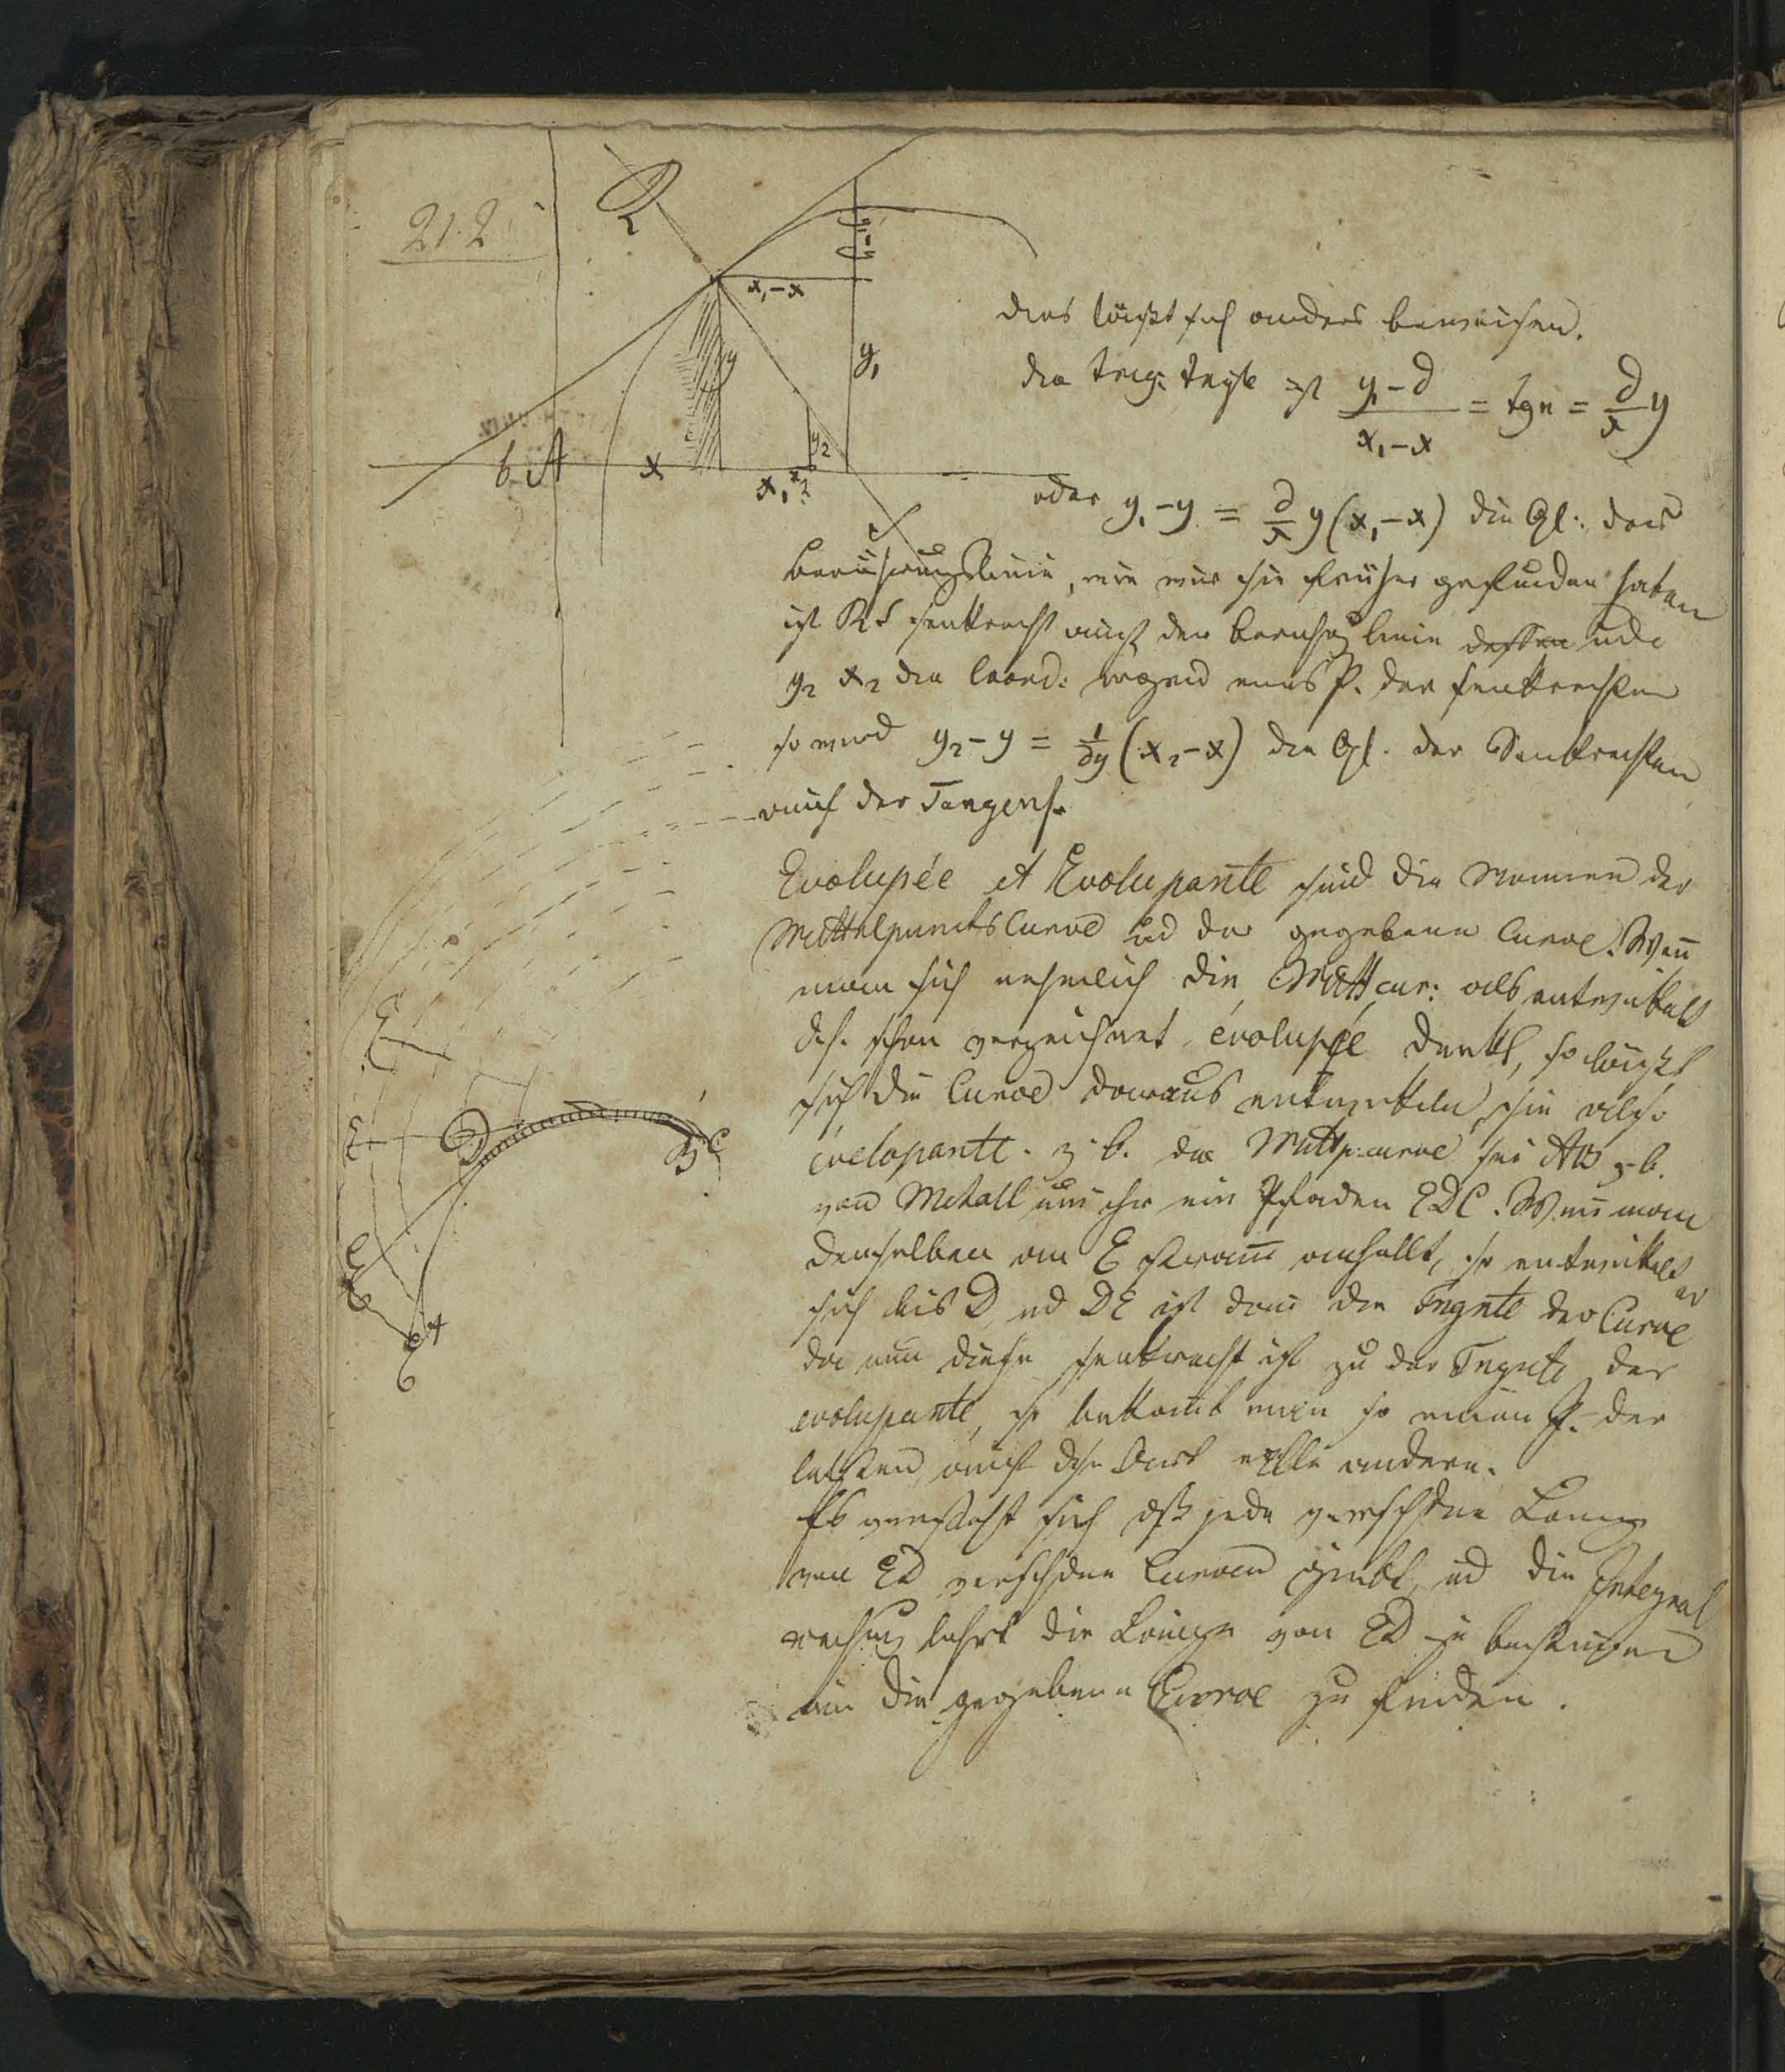 212
R
x, - x
y
y,
y2
b A x x, x2
dies läßt sich anders beweisen.
die trig: Tngte ist y, - d / x, - x = tg n = d/x y
oder y, - y = d/x y (x, - x) die Gl: der
Berührungslinie, wie wir sie früher gefunden haben
ist RS senkrecht auf der Beruhrg linie dessen und
y2 x2 die Coord: irgend eines P. der senkrechten
so wird y2 - y = 1/dy (x2 - x) die Gl. der Senkrechten
auf der Tangens.
Evolupée et Evolupante sind die Namen der
MittelpunctsCurve ud der gegebenen Curve. Wen̄
man sich nehmlich die Mittcur: als entwickelt
d.h. schon gezeichnet évolupée denkt, so läßt
sich die Curve daraus entwickeln, sie also
évelopante. z. B. die Mittp:curve sei AB z. B.
von Metall um sie ein Pfaden EDC. Wen̄ man
denselben an E stram̄ anhällt, so entwickelt er
sich bis D, ud DE ist dan̄ die Tngnte der Curve
da nun diese senkrecht ist zu der Tngnte der
evolupante, so bekom̄t man so einen P. der
letzten, auf dse Art alle andern.
Es versteht sich dß jede verschdne Läng
von ED verschdne Curven giebt, ud die Integral
rechnug lehrt die Länge von ED zu bestim̄en
um die gegebene Curve zu finden.
E
E
D
B C
E
E A